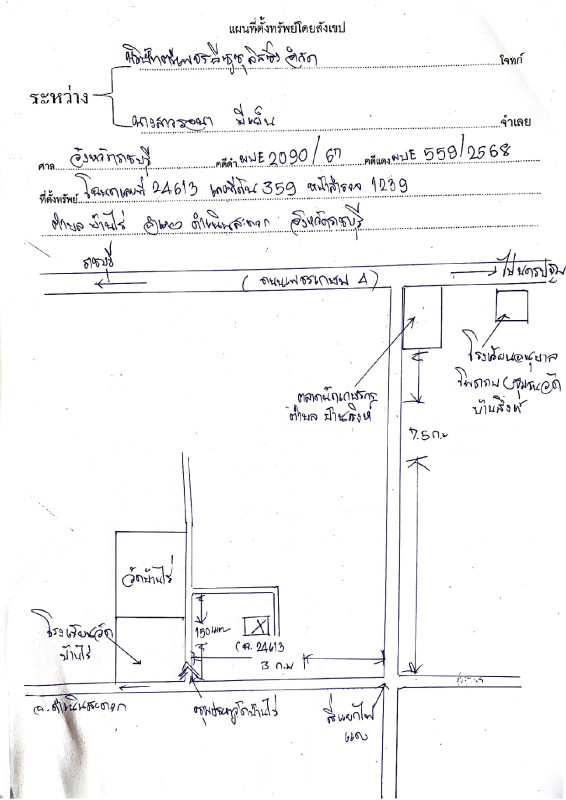 แผนที่ตั้งทรัพย์โดยสังเขป
โจทก์
ระหว่าง
นางสาวรอนา มีเย็น จำเลย
ศาล จังหวัดราชบุรี คดีดำ ผบE 2090/67 คดีแดง ผบE 559/2568
ที่ตั้งทรัพย์ โฉนดเลขที่ 24613 เลขที่ดิน 359 หน้าสำรวจ 1239
ตำบล บ้านไร่ อำเภอ ดำเนินสะดวก จังหวัดราชบุรี
ราชบุรี
(ถนนเพชรเกษม 4)
ไปนครปฐม
ตลาดนัด
ตำบล บ้านสิงห์
โรงเรียนอนุบาล
โพธาราม (ชุมชนวัด
บ้านสิงห์
7.5 ก.ม
วัดบ้านไร่
โรงเรียนวัด
บ้านไร่
150 เมตร
X
ฉ. 24613
3 ก.ม
อ. ดำเนินสะดวก
ซุ้มประตูวัดบ้านไร่
สี่แยกไฟ
แดง